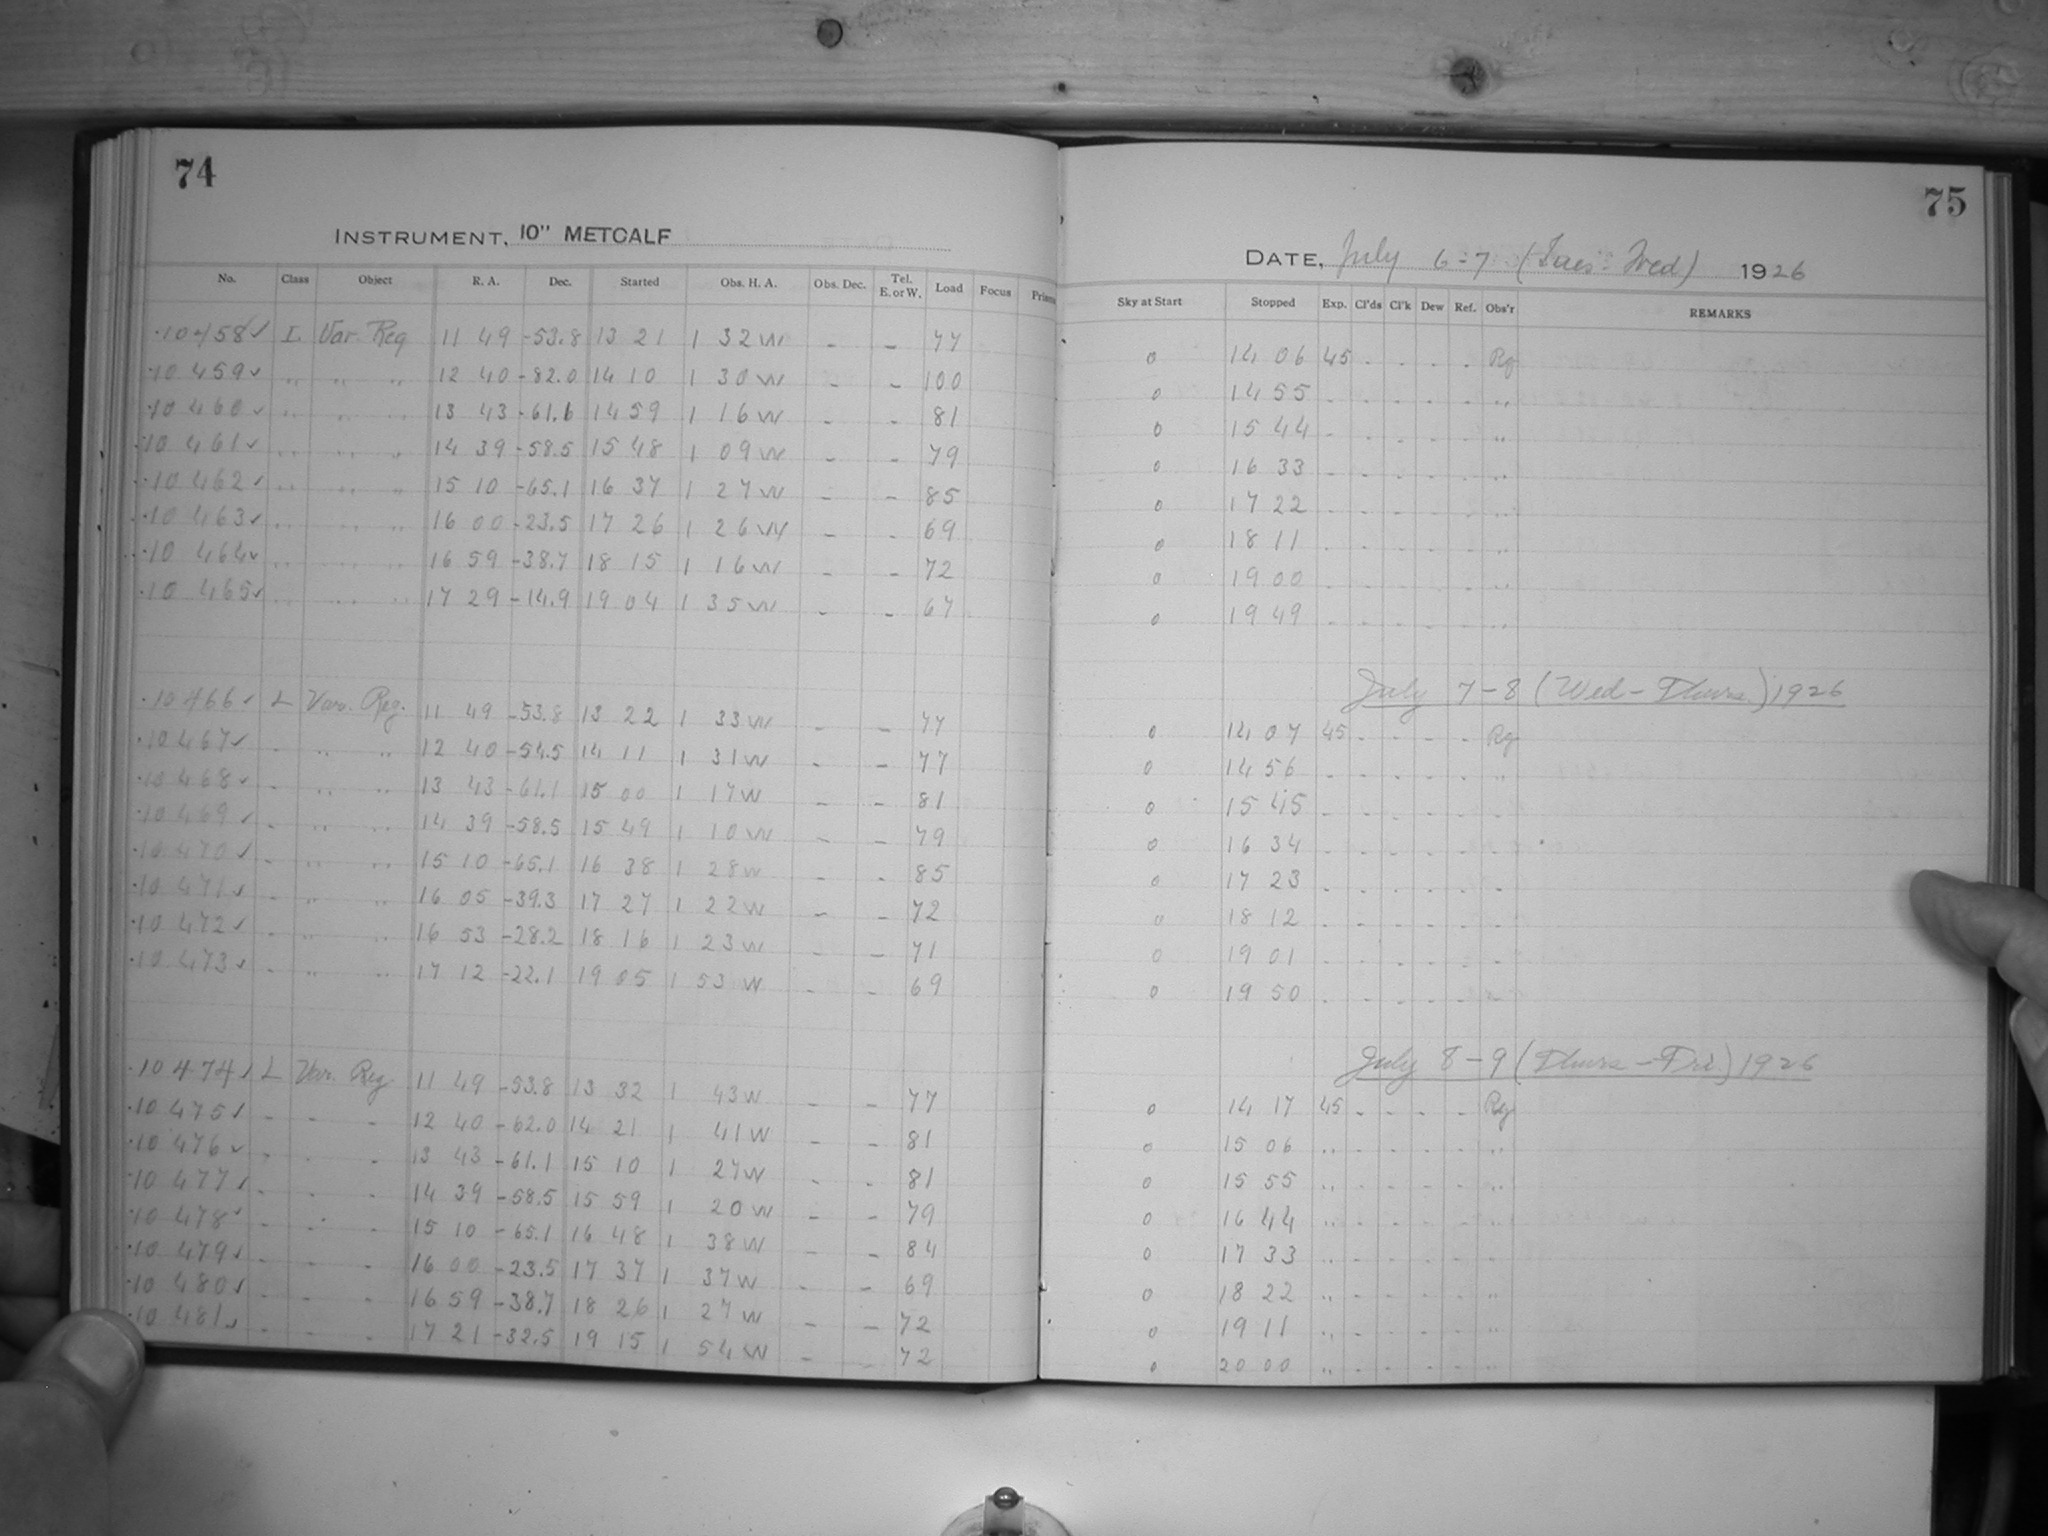 74
INSTRUMENT, 10" METCALF
No. Class Object R. A. Dec. Started Obs. H. A. Obs. Dec. Tel. E. or W. Load Focus Prism
10458 ✓ I. Var. Reg 11 49 -53.8 13 21 1 32 W - - 77
10 459 ✓ " " " 12 40 -82.0 14 10 1 30 W - - 100
10 460 ✓ " " " 13 43 -61.6 14 59 1 16 W - - 81
10 461 ✓ " " " 14 39 -58.5 15 48 1 09 W - - 79
10 462 ✓ " " " 15 10 -65.1 16 37 1 27 W - - 85
10 463 ✓ " " " 16 00 -23.5 17 26 1 26 W - - 69
10 464 ✓ " " " 16 59 -38.7 18 15 1 16 W - - 72
10 465 ✓ " " " 17 29 -14.9 19 04 1 35 W - - 67
10 466 ✓ L Var. Reg. 11 49 -53.8 13 22 1 33 W - - 77
10 467 ✓ - " " 12 40 -54.5 14 11 1 31 W - - 77
10 468 ✓ - " " 13 43 -61.1 15 00 1 17 W - - 81
10 469 ✓ - " " 14 39 -58.5 15 49 1 10 W - - 79
10 470 ✓ - " " 15 10 -65.1 16 38 1 28 W - - 85
10 471 ✓ - " " 16 05 -39.3 17 27 1 22 W - - 72
10 472 ✓ - " " 16 53 -28.2 18 16 1 23 W - - 71
10 473 ✓ - " " 17 12 -22.1 19 05 1 53 W - - 69
10 474 ✓ L Var. Reg 11 49 -53.8 13 32 1 43 W - - 77
10 475 ✓ - - - 12 40 -62.0 14 21 1 41 W - - 81
10 476 ✓ - - - 13 43 -61.1 15 10 1 27 W - - 81
10 477 ✓ - - - 14 39 -58.5 15 59 1 20 W - - 79
10 478 ✓ - - - 15 10 -65.1 16 48 1 38 W - - 84
10 479 ✓ - - - 16 00 -23.5 17 37 1 37 W - - 69
10 480 ✓ - - - 16 59 -38.7 18 26 1 27 W - - 72
10 481 ✓ - - - 17 21 -32.5 19 15 1 54 W - - 72
75
DATE, July 6-7 (Tues-Wed) 1926
Sky at Start Stopped Exp. Cl'ds Cl'k Dew Ref. Obs'r REMARKS
0 14 06 45 - - - - Rg
0 14 55 - - - - - "
0 15 44 - - - - - "
0 16 33 - - - - - "
0 17 22 - - - - - "
0 18 11 - - - - - "
0 19 00 - - - - - "
0 19 49 - - - - - "
July 7-8 (Wed-Thurs.) 1926
0 14 07 45 - - - - Rg
0 14 56 - - - - - "
0 15 45 - - - - - -
0 16 34 - - - - - -
0 17 23 - - - - - -
0 18 12 - - - - - -
0 19 01 - - - - - -
0 19 50 - - - - - -
July 8-9 (Thurs-Fri.) 1926
0 14 17 45 - - - - Rg
0 15 06 " - - - - "
0 15 55 " - - - - "
0 16 44 " - - - - "
0 17 33 " - - - - "
0 18 22 " - - - - "
0 19 11 " - - - - "
0 20 00 " - - - - "